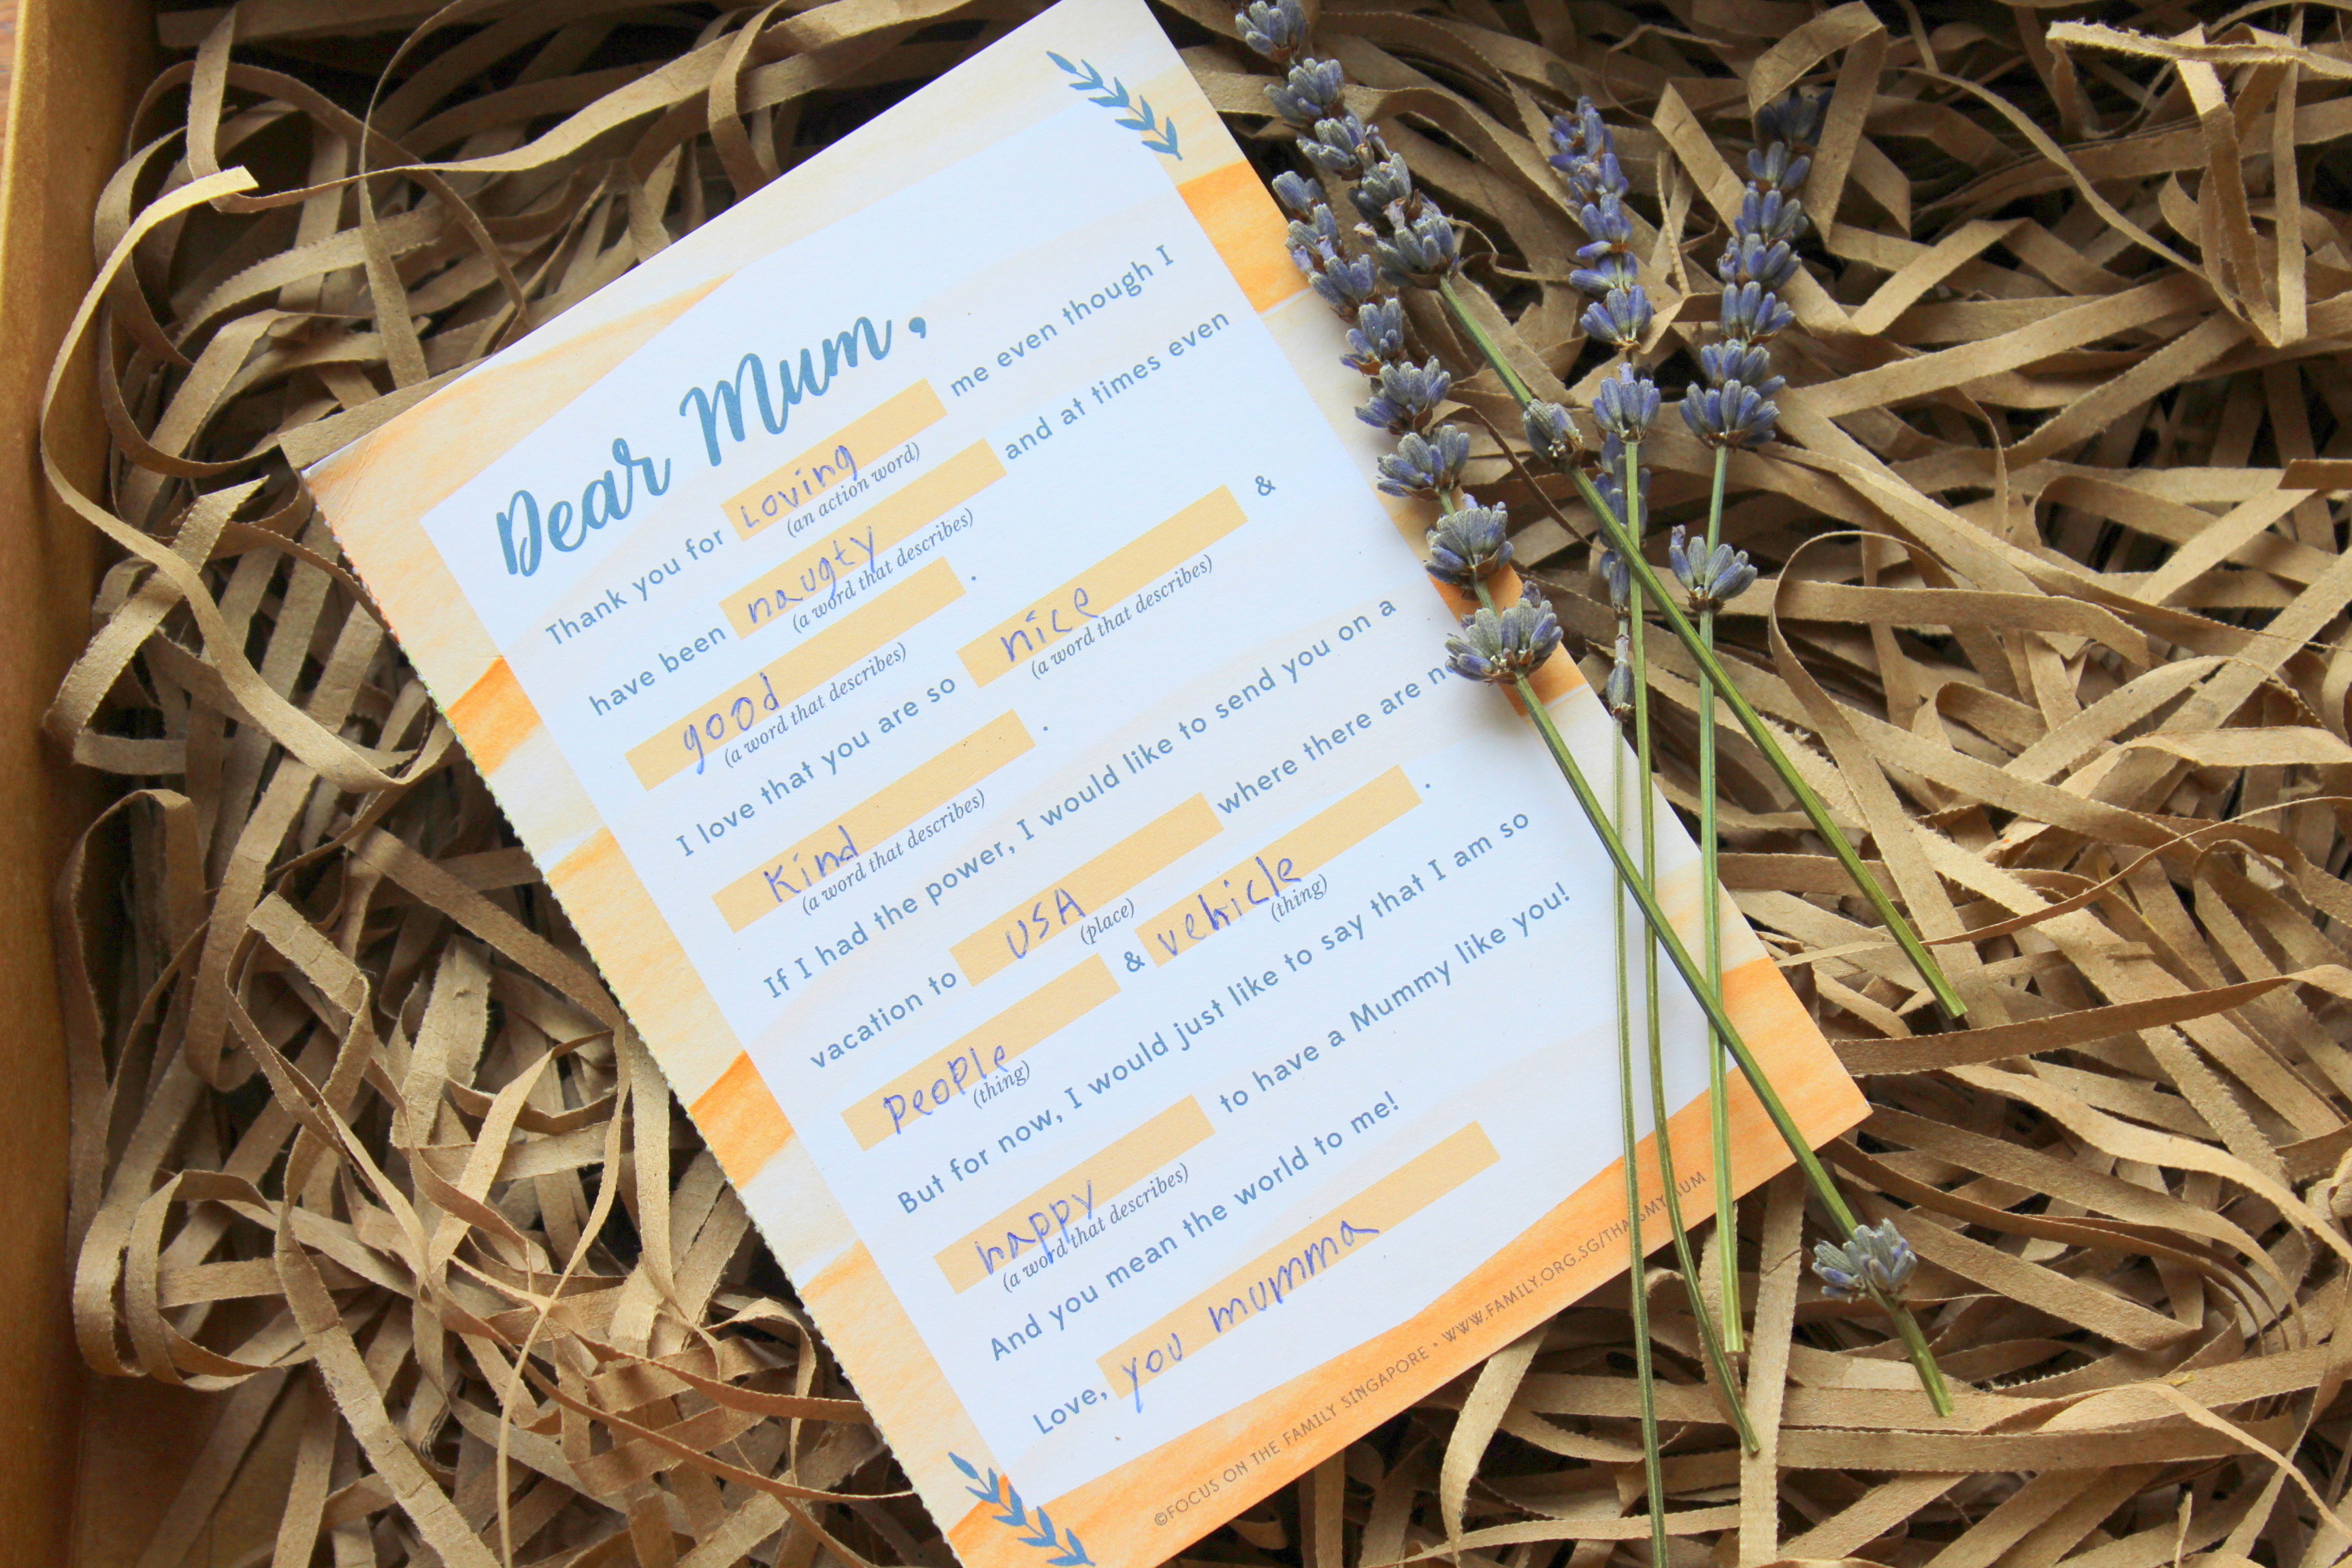 Dear Mum,
Thank you for Loving me even though I
(an action word)
have been naugty and at times even
(a word that describes)
good.
(a word that describes)
I love that you are so nice &
(a word that describes)
Kind.
(a word that describes)
If I had the power, I would like to send you on a
vacation to USA where there are
(place)
people & vehicle.
(thing) (thing)
But for now, I would just like to say that I am so
happy to have a Mummy like you!
(a word that describes)
And you mean the world to me!
Love, you mumma
©FOCUS ON THE FAMILY SINGAPORE • WWW.FAMILY.ORG.SG/